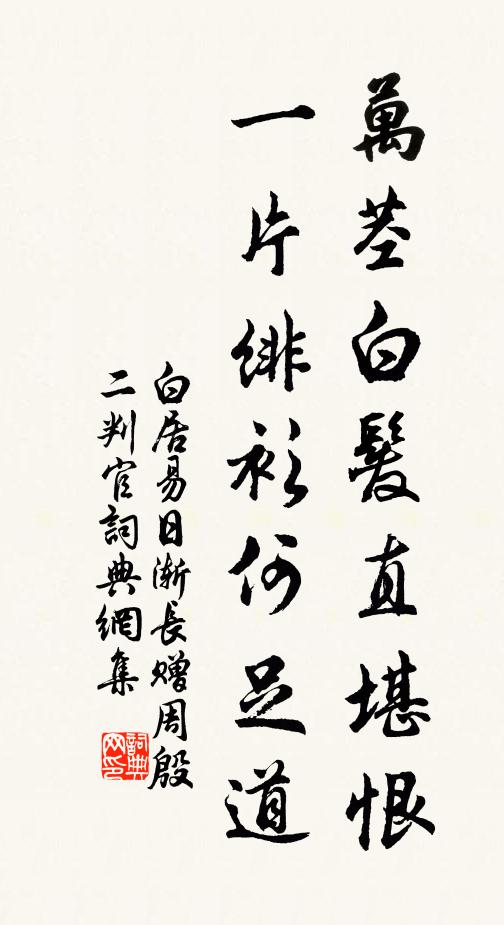 萬莖白髮直堪恨
一片緋衫何足道
白居易日漸長贈周殷
二判官詞典網集
詞典
网印